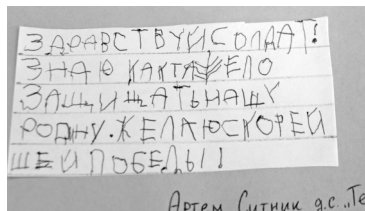 ЗДРАВСТВУЙ СОЛДАТ!
ЗНАЮ КАК ТЯЖЕЛО
ЗАЩИЩАТЬ НАШУ
РОДИНУ. ЖЕЛАЮ СКОРЕЙ
ШЕЙ ПОБЕДЫ!
Артем Ситник д.с. „Те